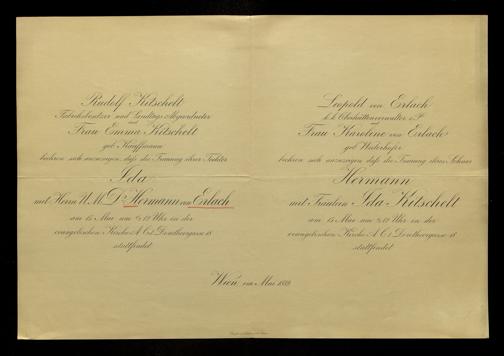 Rudolf Kitschelt
Fabriksbesitzer und Landtags-Abgeordneter
und
Frau Emma Kitschelt
geb. Kauffmann
beehren sich anzuzeigen, daß die Trauung ihrer Tochter
Ida
mit Herrn U.M.Dr. Hermann von Erlach
am 15. Mai um ½12 Uhr in der
evangelischen Kirche A.C. I. Dorotheergasse 18
stattfindet.
Leopold von Erlach
k.k. Oberhüttenverwalter i.P.
und
Frau Karoline von Erlach
geb.
beehren sich anzuzeigen, daß die Trauung ihres Sohnes
Hermann
mit Fräulein Ida Kitschelt
am 15. Mai um ½12 Uhr in der
evangelischen Kirche A.C. I. Dorotheergasse 18
stattfindet.
Wien, im Mai